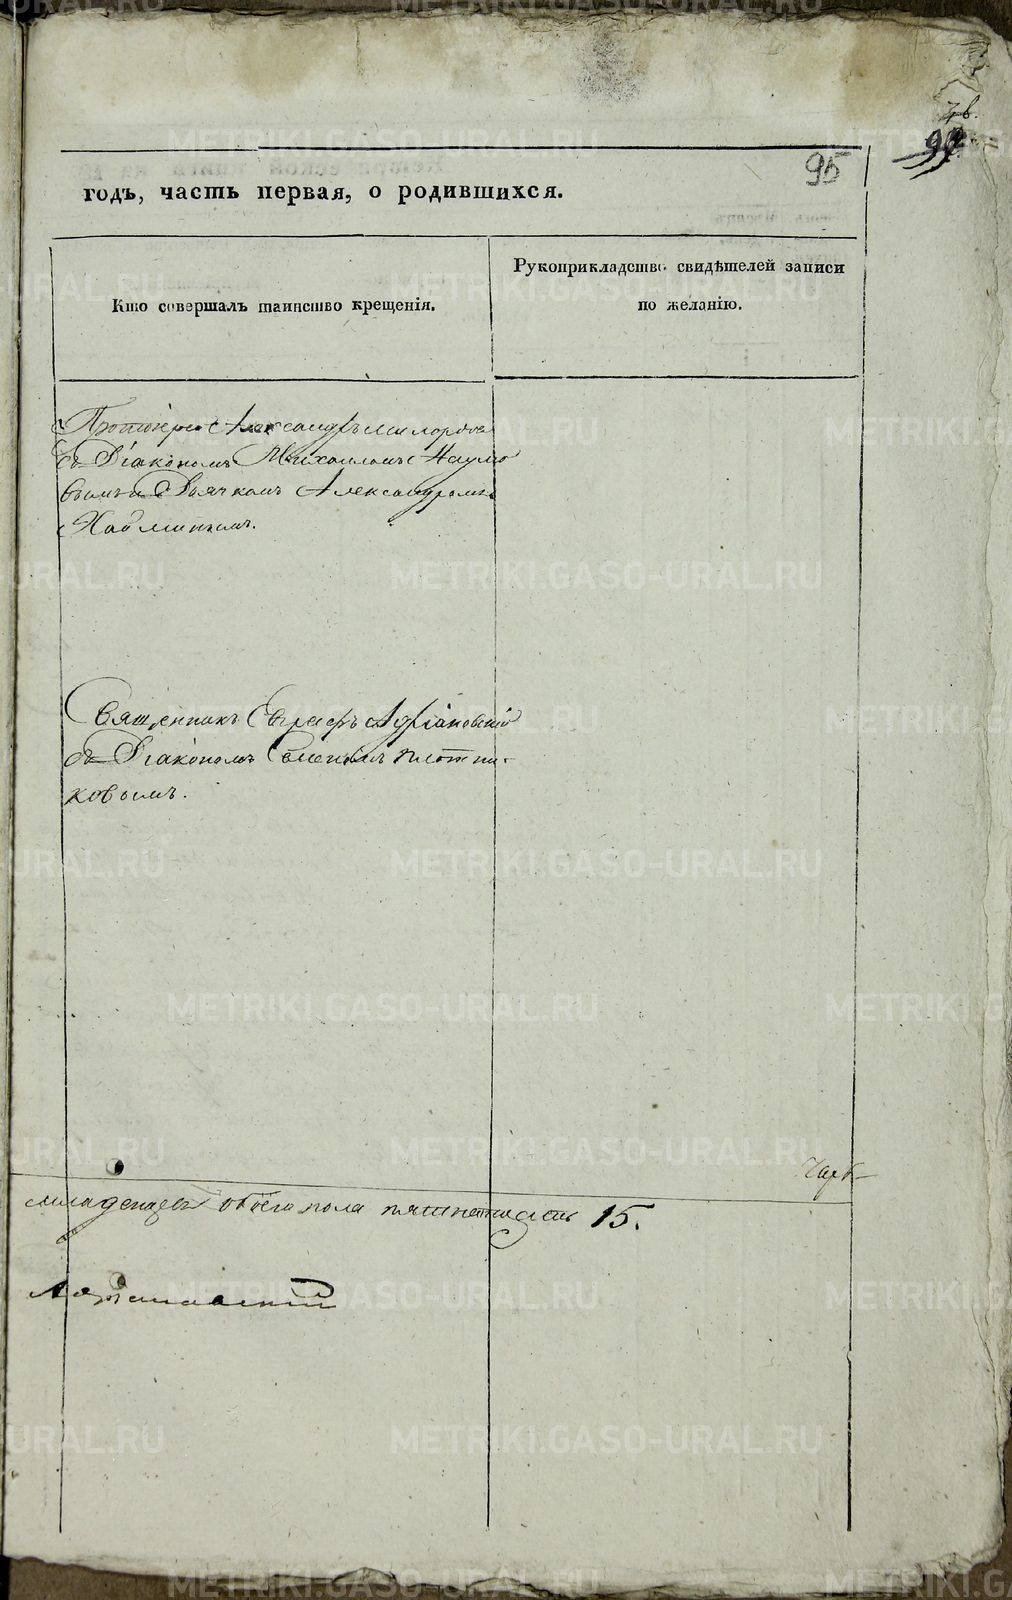 95
годъ, часть первая, о родившихся.
Кто совершалъ таинство крещенія.
Рукоприкладство свидѣтелей записи
по желанію.
Протоіерей Александръ
съ Діакономъ Михаиломъ Наумо
вымъ и Дьячкомъ Александромъ
Священникъ Евграфъ Адріановскій
съ Діакономъ Семеномъ Плотни-
ковымъ.
младенцевъ обоего пола пятнатцать 15.
METRIKI.GASO-URAL.RU